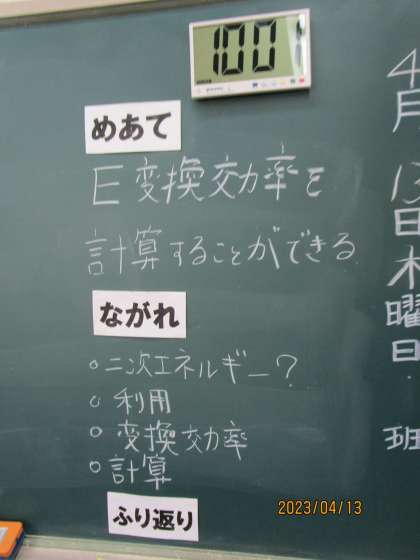 めあて
E変換効率を
計算することができる
ながれ
○二次エネルギー?
○利用
○変換効率
○計算
ふり返り
4月13日木曜日
班
2023/04/13